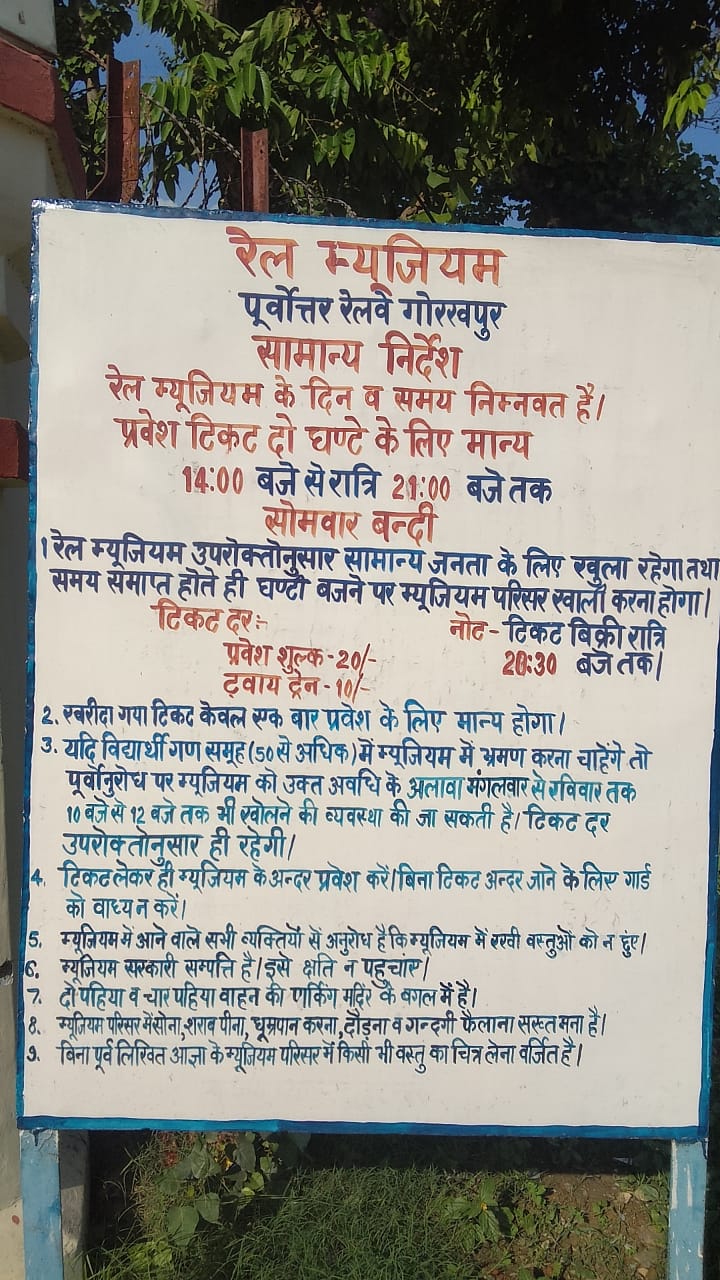 रेल म्यूजियम
पूर्वोत्तर रेलवे गोरखपुर
सामान्य निर्देश
रेल म्यूजियम के दिन व समय निम्नवत है।
प्रवेश टिकट दो घण्टे के लिए मान्य
14:00 बजे से रात्रि 21:00 बजे तक
सोमवार बन्दी
1 रेल म्यूजियम उपरोक्तोनुसार सामान्य जनता के लिए खुला रहेगा तथा
समय समाप्त होते ही घण्टी बजने पर म्यूजियम परिसर खाली करना होगा।
टिकट दर:-
नोट - टिकट बिक्री रात्रि
प्रवेश शुल्क - 20/-
20:30 बजे तक।
ट्वाय ट्रेन - 10/-
2. खरीदा गया टिकट केवल एक बार प्रवेश के लिए मान्य होगा।
3. यदि विद्यार्थी गण समूह (50 से अधिक) में म्यूजियम में भ्रमण करना चाहेंगे तो
पूर्वानुरोध पर म्यूजियम को उक्त अवधि के अलावा मंगलवार से रविवार तक
10 बजे से 12 बजे तक भी खोलने की व्यवस्था की जा सकती है। टिकट दर
उपरोक्तोनुसार ही रहेगी।
4. टिकट लेकर ही म्यूजियम के अन्दर प्रवेश करें। बिना टिकट अन्दर जाने के लिए गार्ड
को वाध्य न करें।
5. म्यूजियम में आने वाले सभी व्यक्तियों से अनुरोध है कि म्यूजियम में रखी वस्तुओं को न छुंए।
6. म्यूजियम सरकारी सम्पत्ति है। इसे क्षति न पहुचांए।
7. दो पहिया व चार पहिया वाहन की पार्किंग मंदिर के बगल में है।
8. म्यूजियम परिसर में सोना, शराब पीना, धूम्रपान करना, दौड़ना व गन्दगी फैलाना सख्त मना है।
9. बिना पूर्व लिखित आज्ञा के म्यूजियम परिसर में किसी भी वस्तु का चित्र लेना वर्जित है।